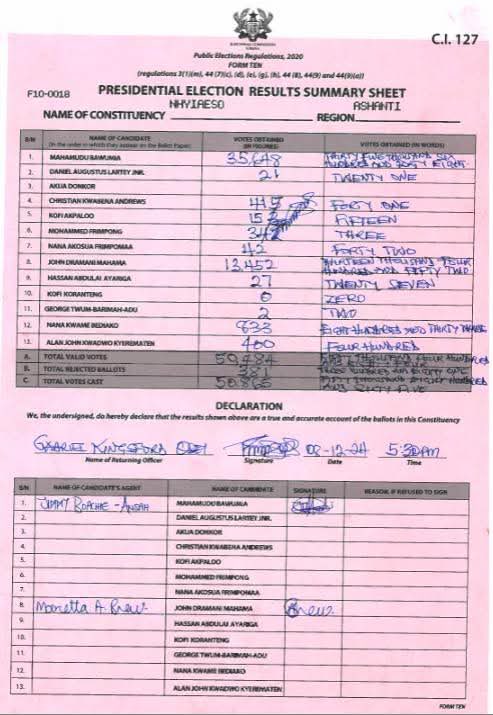 C.I. 127
Public Elections Regulations, 2020
FORM TEN
(regulations 3(1)(m), 44 (7)(c), (d), (e), (g), (h), 44 (8), 44(9) and 44(9)(a))
F10-0018 PRESIDENTIAL ELECTION RESULTS SUMMARY SHEET
NAME OF CONSTITUENCY NHYIAESO REGION ASHANTI
S/N NAME OF CANDIDATE VOTES OBTAINED VOTES OBTAINED (IN WORDS)
(In the order in which they appear on the Ballot Paper) (IN FIGURES)
1. MAHAMUDU BAWUMIA 35,648 THIRTY FIVE THOUSAND SIX HUNDRED AND FORTY EIGHT
2. DANIEL AUGUSTUS LARTEY JNR. 21 TWENTY ONE
3. AKUA DONKOR
4. CHRISTIAN KWABENA ANDREWS FORTY ONE
5. KOFI AKPALOO 15 FIFTEEN
6. MOHAMMED FRIMPONG 3 THREE
7. NANA AKOSUA FRIMPOMAA 42 FORTY TWO
8. JOHN DRAMANI MAHAMA 13,452 THIRTEEN THOUSAND FOUR HUNDRED AND FIFTY TWO
9. HASSAN ABDULAI AYARIGA 27 TWENTY SEVEN
10. KOFI KORANTENG 0 ZERO
11. GEORGE TWUM-BARIMAH-ADU 2 TWO
12. NANA KWAME BEDIAKO 833 EIGHT HUNDRED AND THIRTY THREE
13. ALAN JOHN KWADWO KYEREMATEN 400 FOUR HUNDRED
A. TOTAL VALID VOTES 50,484 FIFTY THOUSAND FOUR HUNDRED
B. TOTAL REJECTED BALLOTS 381 THREE HUNDRED AND EIGHTY ONE
C. TOTAL VOTES CAST 50,865 FIFTY THOUSAND EIGHT HUNDRED AND SIXTY FIVE
DECLARATION
We, the undersigned, do hereby declare that the results shown above are a true and accurate account of the ballots in this Constituency
KINGSFORD 08-12-24 5:30AM
Name of Returning Officer Signature Date Time
S/N NAME OF CANDIDATE'S AGENT NAME OF CANDIDATE SIGNATURE REASON, IF REFUSED TO SIGN
1. JIMMY ANSAH MAHAMUDU BAWUMIA
2. DANIEL AUGUSTUS LARTEY JNR.
3. AKUA DONKOR
4. CHRISTIAN KWABENA ANDREWS
5. KOFI AKPALOO
6. MOHAMMED FRIMPONG
7. NANA AKOSUA FRIMPOMAA
8. A. Brew JOHN DRAMANI MAHAMA Brew
9. HASSAN ABDULAI AYARIGA
10. KOFI KORANTENG
11. GEORGE TWUM-BARIMAH-ADU
12. NANA KWAME BEDIAKO
13. ALAN JOHN KWADWO KYEREMATEN
FORM TEN